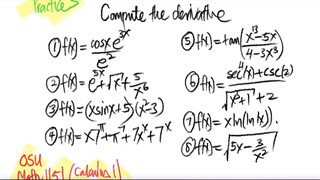 Practice
Compute the derivative
① f(x) = cosx e^{3x} / e^2
② f(x) = e^{5x} + √x + 5/x^6
③ f(x) = (x sinx + 5)(x^2 - 3)
④ f(x) = x7^π + π^{-7} + 7x^x + 7^x
⑤ f(x) = tan((x^{13} - 5x)/(4 - 3x^3))
⑥ f(x) = (sec(4^x) + csc(2)) / (√(x^2 + 1) + 2)
⑦ f(x) = x ln(ln(x)).
⑧ f(x) = √(5x - 3/x^2)
OSU
Math 1151 (Calculus 1)